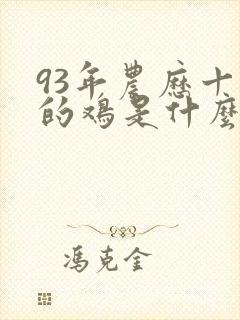 93年農歷十
的鸡是什麼
馮克全